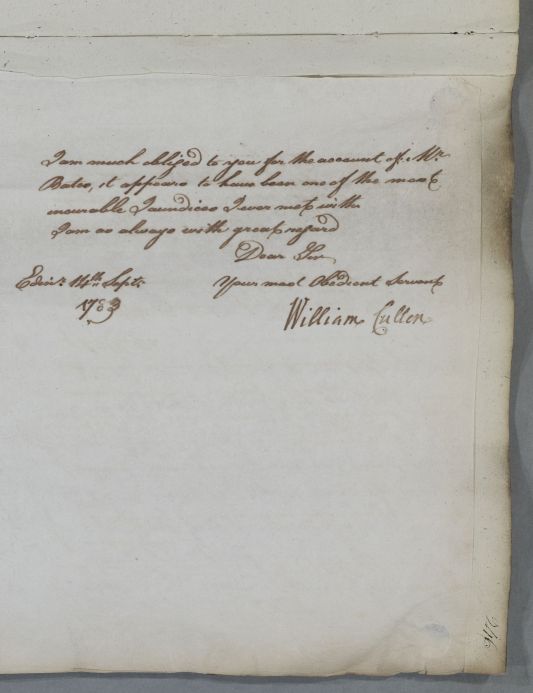 I am much obliged to you for the account of Mr.
Bates, it appears to have been one of the most
incurable Jaundices I ever met with
I am as always with great regard
Dear Sir
Your most Obedient Servant
Edinr. 14th. Septr.
1783
William Cullen